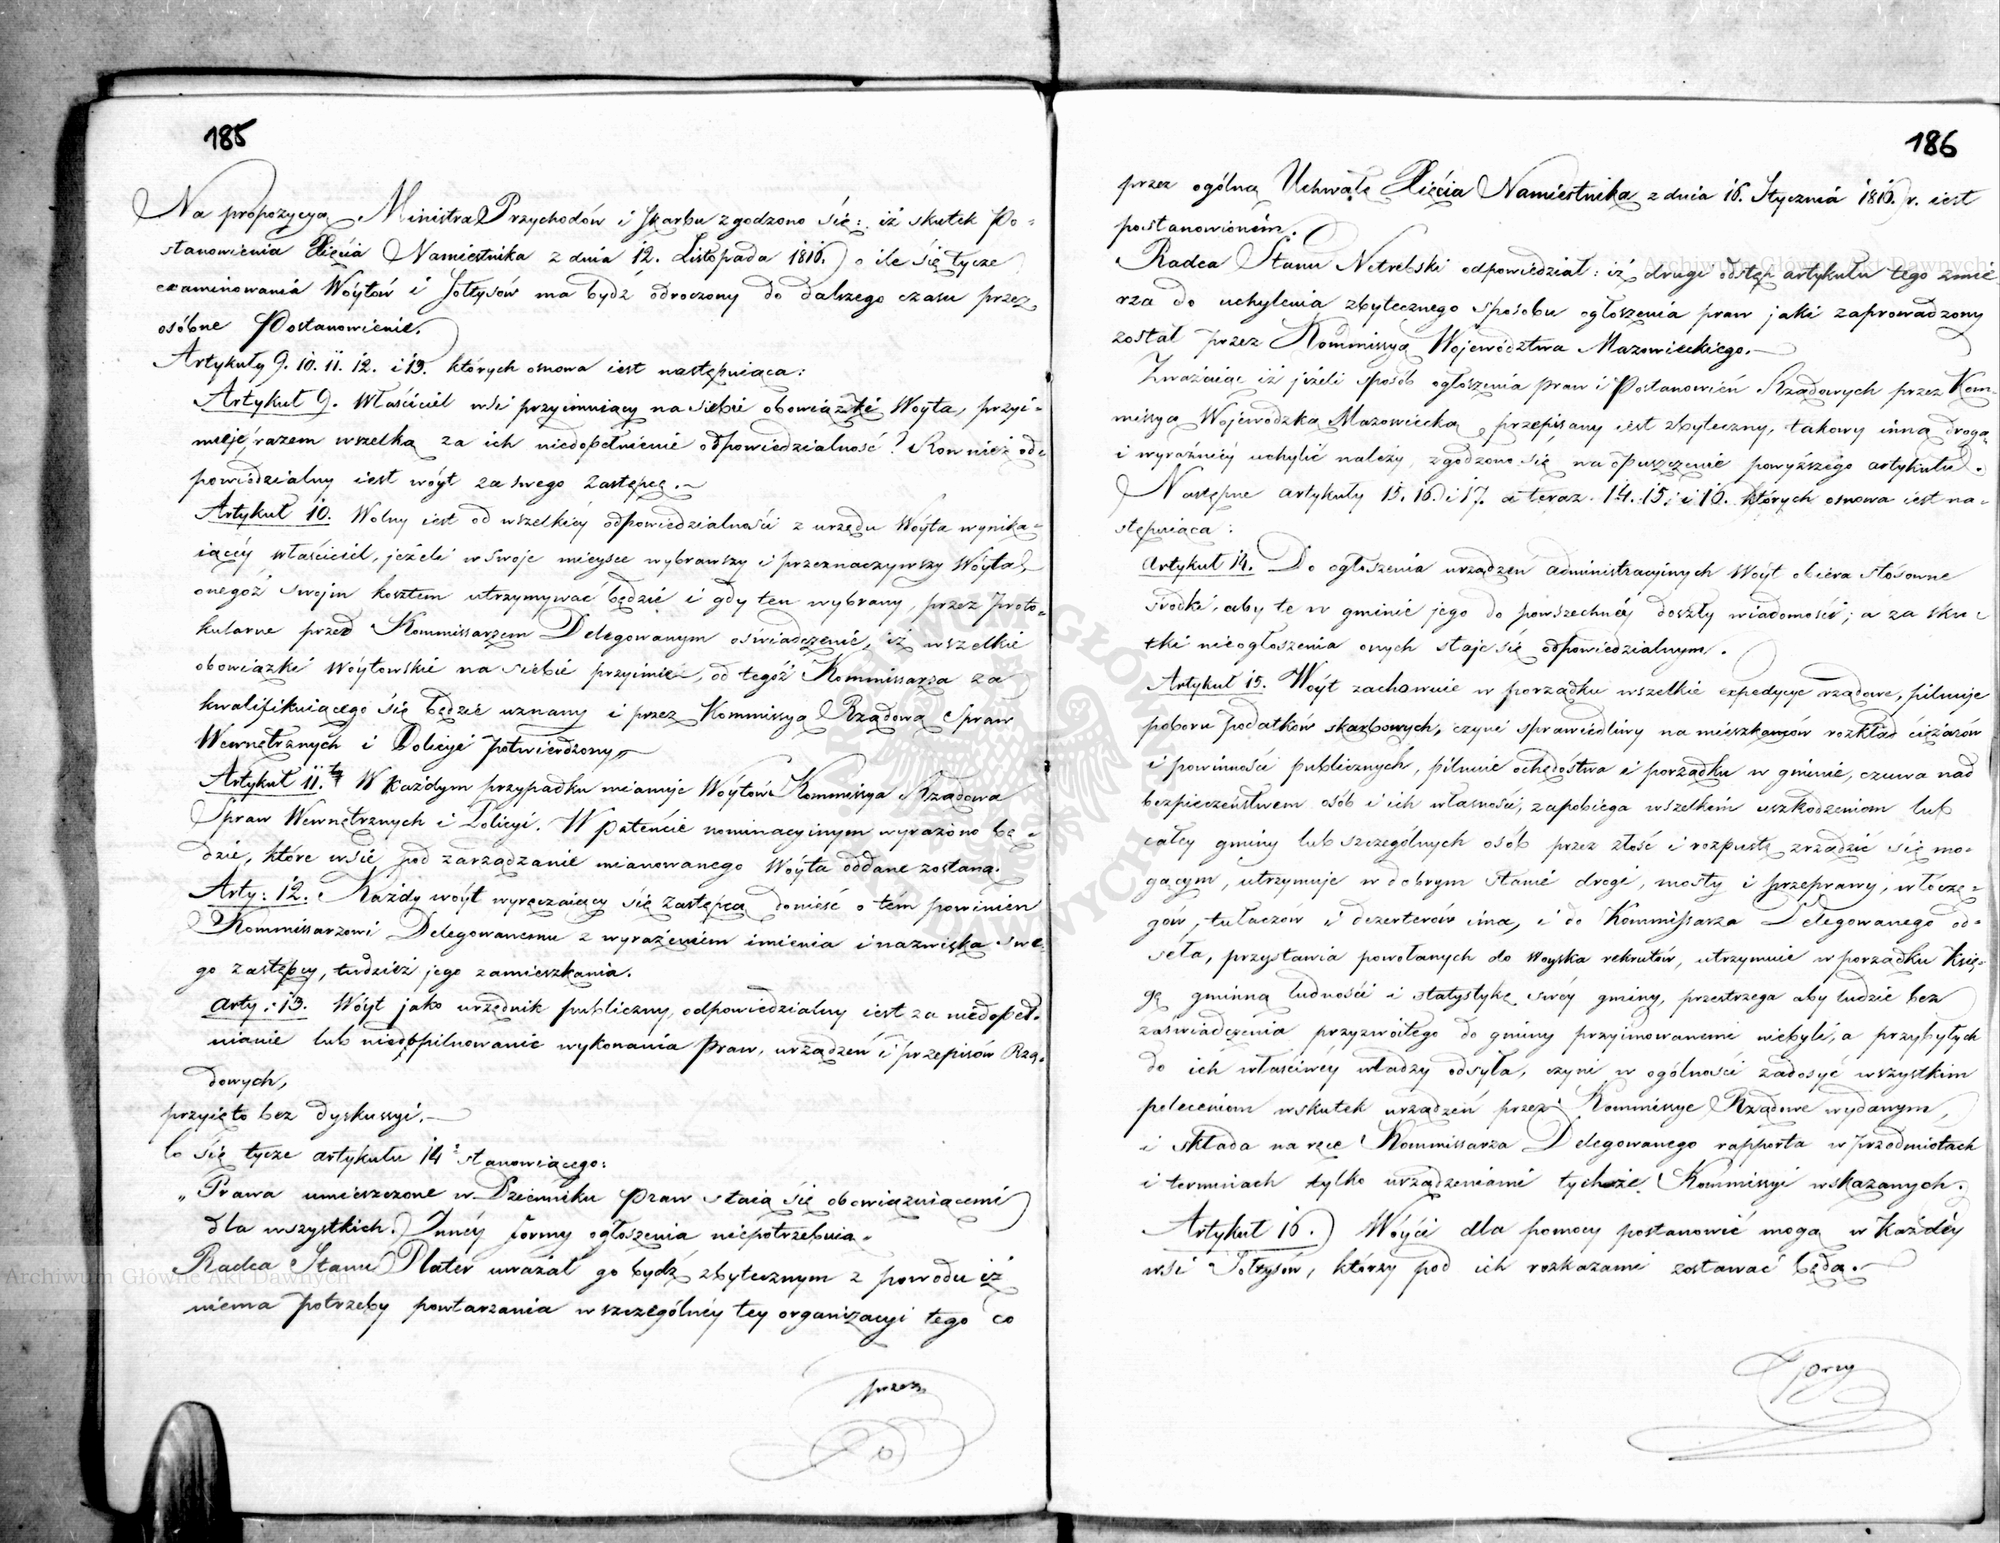 185
Na propozycyą Ministra Przychodów i Skarbu zgodzono się: iż skutek Po-
stanowienia Xięcia Namiestnika z dnia 12. Listopada 1816. o ile się tycze
examinowania Wóytów i Sołtysów ma bydź odroczony do dalszego czasu przez
osóbne Postanowienie.
Artykuły 9. 10. 11. 12. i 13. których osnowa iest następuiąca:
Artykuł 9. Właściciel wsi przyimuiący na siebie obowiązki Woyta, przyi-
muje razem wszelką za ich niedopełnienie odpowiedzialność? Rownież od-
powiedzialny iest wóyt za swego zastępcę.
Artykuł 10. Wolny iest od wszelkiéy odpowiedzialności z urzędu Wóyta wynika-
iącéy właściciel, jeżeli w swoje mieysce wybrawszy i przeznaczywszy Wóyta,
onegoż swojm kosztem utrzymywać będzie i gdy ten wybrany, przez proto-
kularne przed Kommissarzem Delegowanym oświadczenie, iż wszelkie
obowiązki Wóytowskie na siebie przyimie, od tegóż Kommissarza za
kwalifikuiącego się będzie uznany i przez Kommissyą Rządową Spraw
Wewnętrznych i Policyi potwierdzony
Artykuł 11.ty W każdym przypadku mianuje Wóytów Kommissya Rządowa
Spraw Wewnętrznych i Policyi. W patencie nominacyinym wyrażono bę-
dzie, które wsie pod zarządzanie mianowanego Wóyta oddane zostaną.
Arty: 12. Każdy wóyt wyręczaiący się zastępcą donieść o tém powinien
Kommissarzowi Delegowanemu z wyrażeniem imienia i nazwiska swe-
go zastępcy, tudzież jego zamieszkania.
Arty: 13. Wóyt jako urzędnik publiczny, odpowiedzialny iest za niedopeł-
nianie lub niedopilnowanie wykonania Praw, urządzeń i przepisów Rzą-
dowych,
przyięto bez dyskussyi.
Co się tycze artykułu 14 stanowiącego:
„Prawa umieszczone w Dzienniku Praw staią się obowiązuiącemi
dla wszystkich. Innéy formy ogłoszenia niepotrzebuią.
Radca Stanu Plater uważał go bydź zbytecznym z powodu iż
niema potrzeby powtarzania w szczególnéy téy organizacyi tego co
przez
186
przez ogólną Uchwałę Xięcia Namiestnika z dnia 16. Stycznia 1816. r. iest
postanowioném.
Radca Stanu Netrebski odpowiedział: iż drugi odstęp artykułu tego zmie-
rza do uchylenia zbytecznego sposobu ogłoszenia praw jaki zaprowadzony
został przez Kommissyą Województwa Mazowieckiego.
Zważaiąc iż jeżeli sposób ogłoszenia praw i Postanowień Rządowych przez Kom-
missyą Wojewódzką Mazowiecką przepisany iest zbyteczny, takowy inną drogą
i wyraźniéy uchylić należy, zgodzono się na opuszczenie powyższego artykułu.
Następne artykuły 15. 16. i 17. a teraz 14. 15. i 16. których osnowa iest na-
stępuiąca:
Artykuł 14. Do ogłoszenia urządzeń administracyinych Wóyt obiera stósowne
środki, aby te w gminie jego do powszechnéy doszły wiadomości; a za sku-
tki nieogłoszenia onych staje się odpowiedzialnym.
Artykuł 15. Wóyt zachowuie w porządku wszelkie expedycye rządowe, pilnuje
poboru podatków skarbowych, czyni sprawiedliwy na mieszkańców rozkład ciężarów
i powinności publicznych, pilnuie ochędóstwa i porządku w gminie, czuwa nad
bezpieczeństwem osób i ich własności, zapobiega wszelkim uszkodzeniom lub
całéy gminy lub szczególnych osób przez złość i rozpustę zrządzić się mo-
gącym, utrzymuje w dobrym stanie drogi, mosty i przeprawy, włóczę-
gów, tułaczów i dezerterów ima, i do Kommissarza Delegowanego od-
seła, przystawia powołanych do Woyska rekrutów, utrzymuie w porządku Księ-
gę gminną ludności i statystykę swéy gminy, przestrzega aby ludzie bez
zaświadczenia przyzwoitego do gminy przyimowanemi niebyli, a przybyłych
do ich właściwéy władzy odsyła, czyni w ogólności zadosyć wszystkim
poleceniom wskutek urządzeń przez Kommissye Rządowe wydanym,
i składa na ręce Kommissarza Delegowanego rapporta w przedmiotach
i terminach tylko urządzeniami tychże Kommissyi wskazanych.
Artykuł 16. Wóyci dla pomocy postanowić mogą w każdéy
wsi Sołtysów, którzy pod ich rozkazami zostawać będą.
przy
Archiwum Główne Akt Dawnych
Archiwum Główne Akt Dawnych
ARCHIWUM GŁÓWNE AKT DAWNYCH